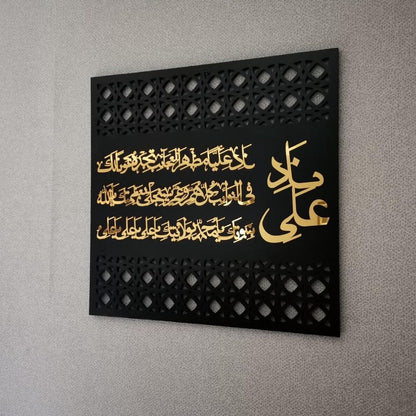 ناد علي
ناد عليا مظهر العجائب تجده عونا لك
في النوائب كل هم وغم سينجلي بعظمتك يا الله
بنبوتك يا محمد بولايتك يا علي يا علي يا علي